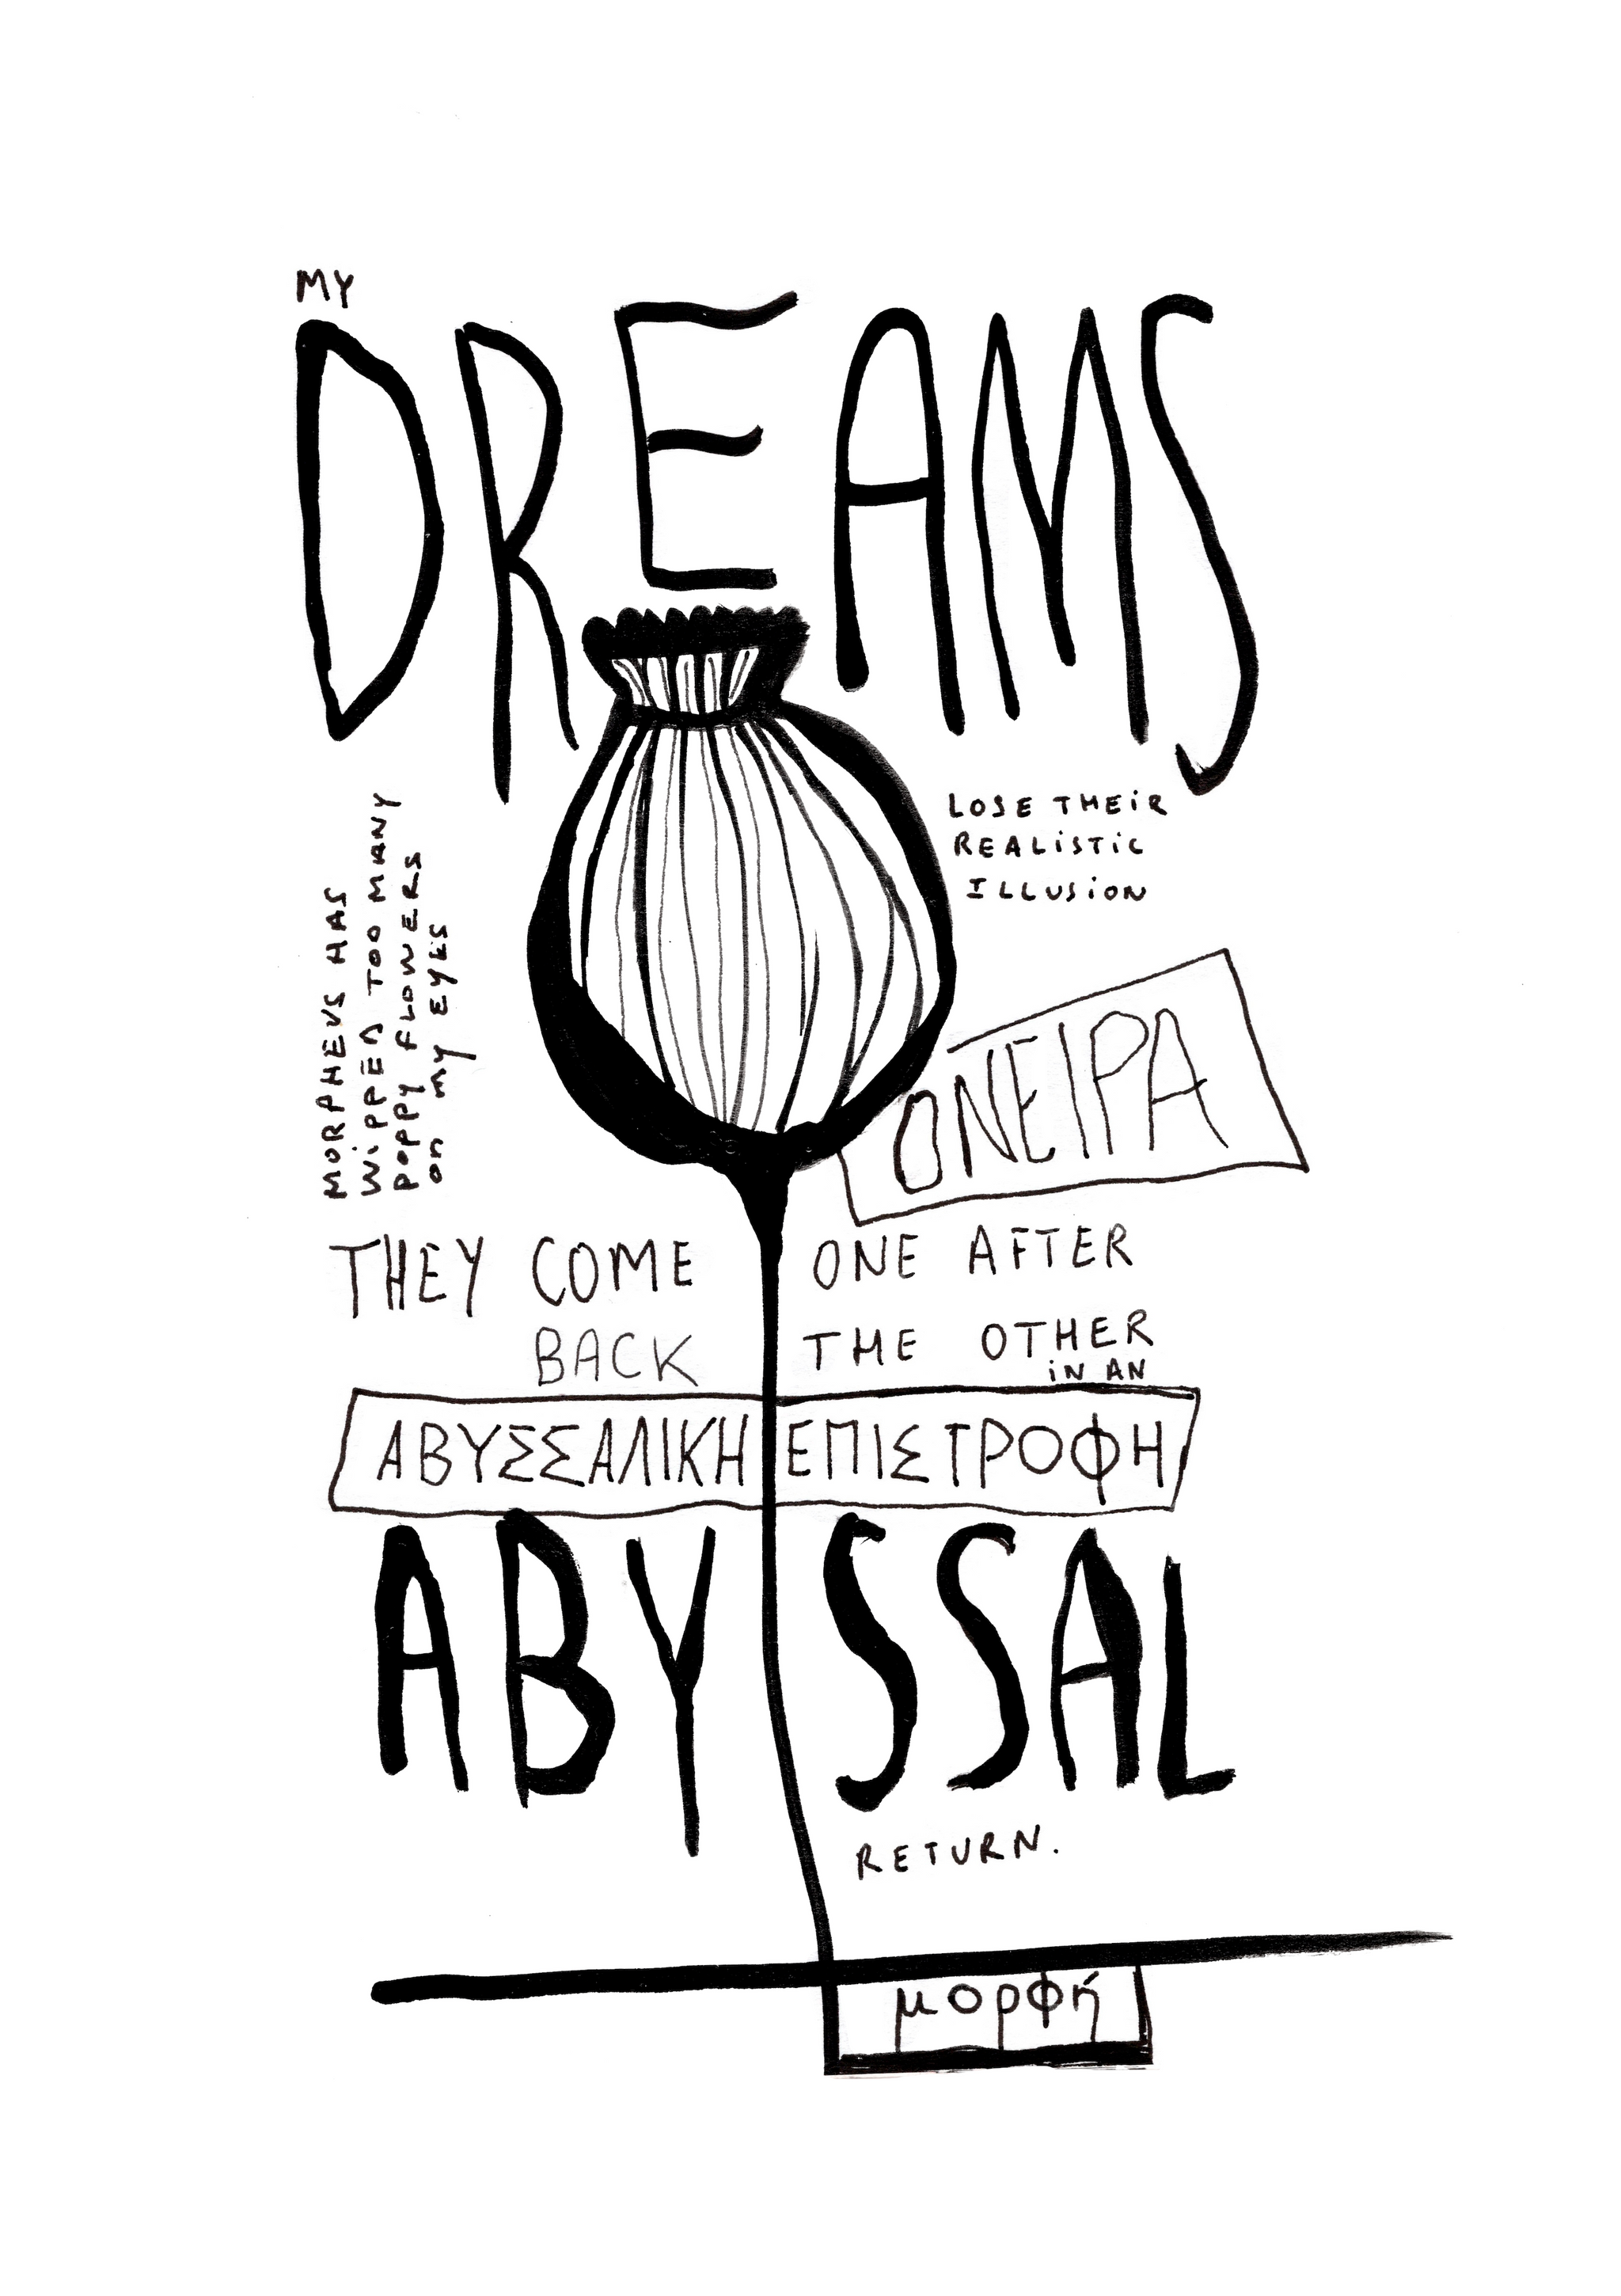 MY
DREAMS
LOSE THEiR
REALiSTiC
ILLUSiON
MORPHEUS HAS
WiPPED TOO MANY
POPPY FLOWERS
on my EYES
ΟΝΕΙΡΑ
THEY COME ONE AFTER
BACK THE OTHER
iN AN
ΑΒΥΣΣΑΛΙΚΗ ΕΠΙΣΤΡΟΦΗ
ABYSSAL
RETURN.
μορφή